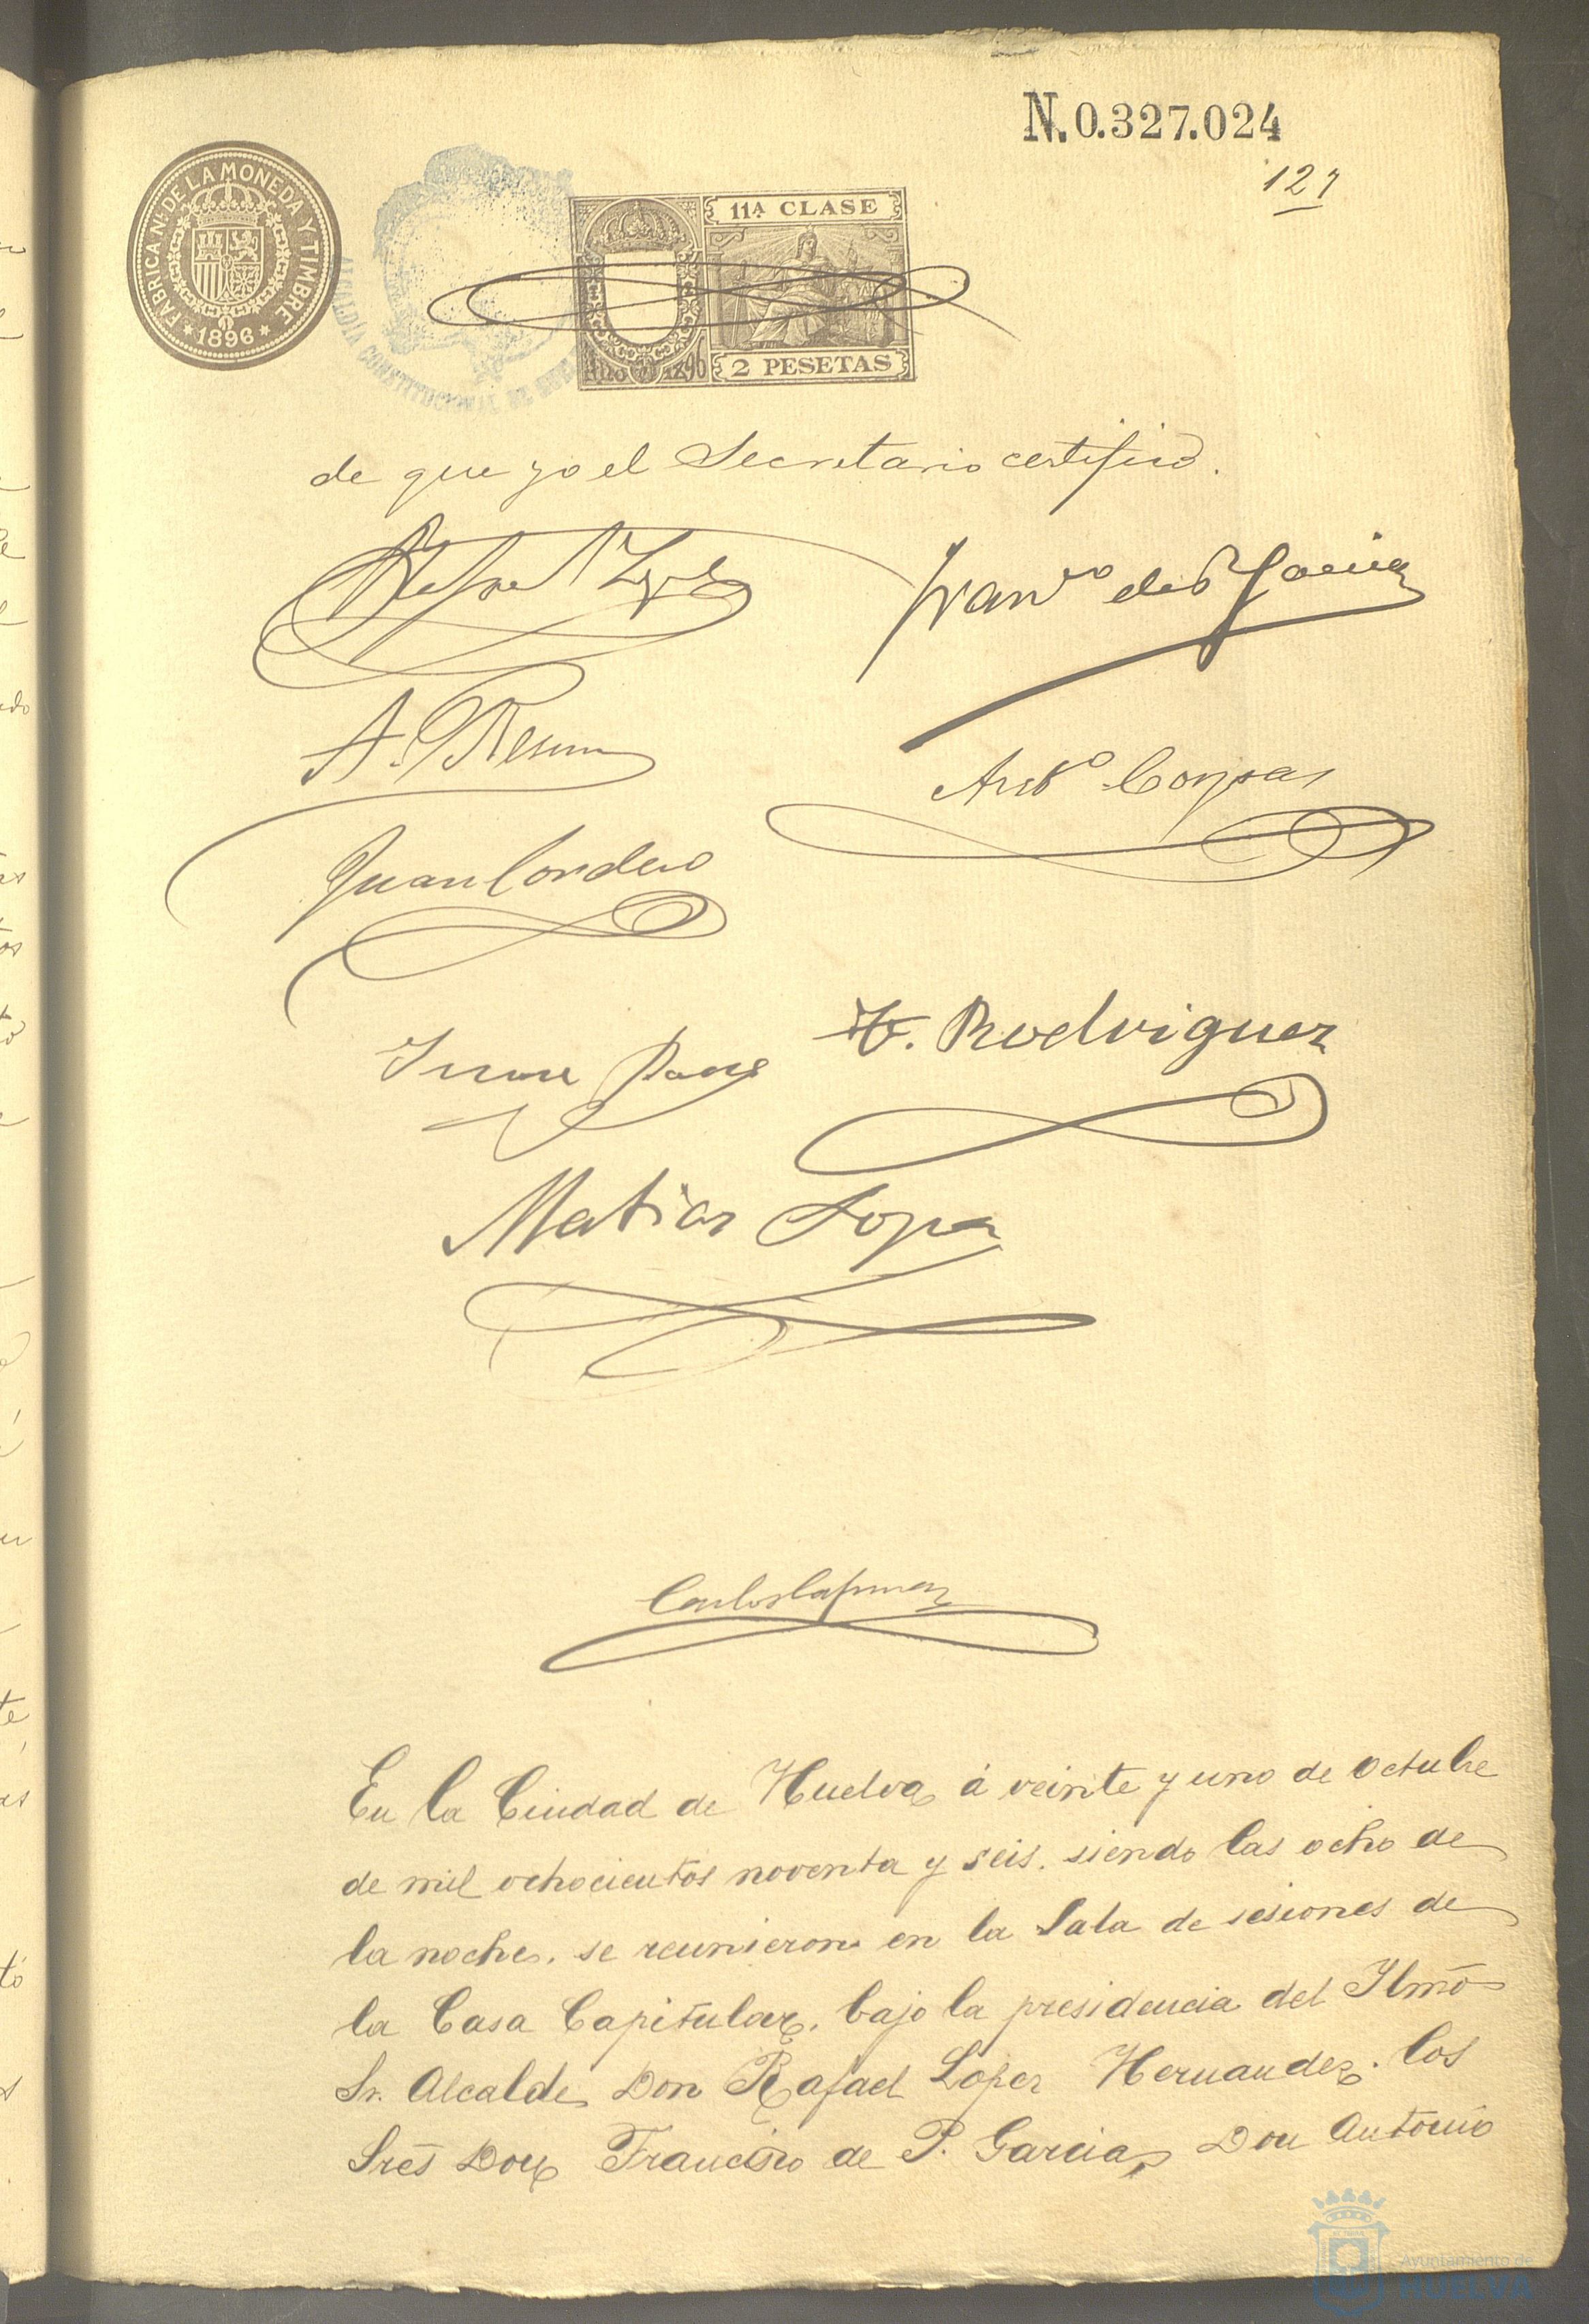 N.0.327.024
127
FABRICA Nl. DE LA MONEDA Y TIMBRE
1896
ALCALDIA CONSTITUCIONAL DE
11ª CLASE
Año 1896
2 PESETAS
de que yo el Secretario certifico.
Rafael Lopez
Franco de P Garcia
A. G.
Anto Corpas
Juan Cordero
F. Rodriguez
Matias Lopez
Carlos
En la Ciudad de Huelva á veinte y uno de octubre
de mil ochocientos noventa y seis. siendo las ocho de
la noche. se reunieron en la Sala de sesiones de
la Casa Capitular. bajo la presidencia del Ylmo
Sr. Alcalde Don Rafael Lopez Hernandez. los
Sres Don Francisco de P. Garcia, Don Antonio
Ayuntamiento de
HUELVA